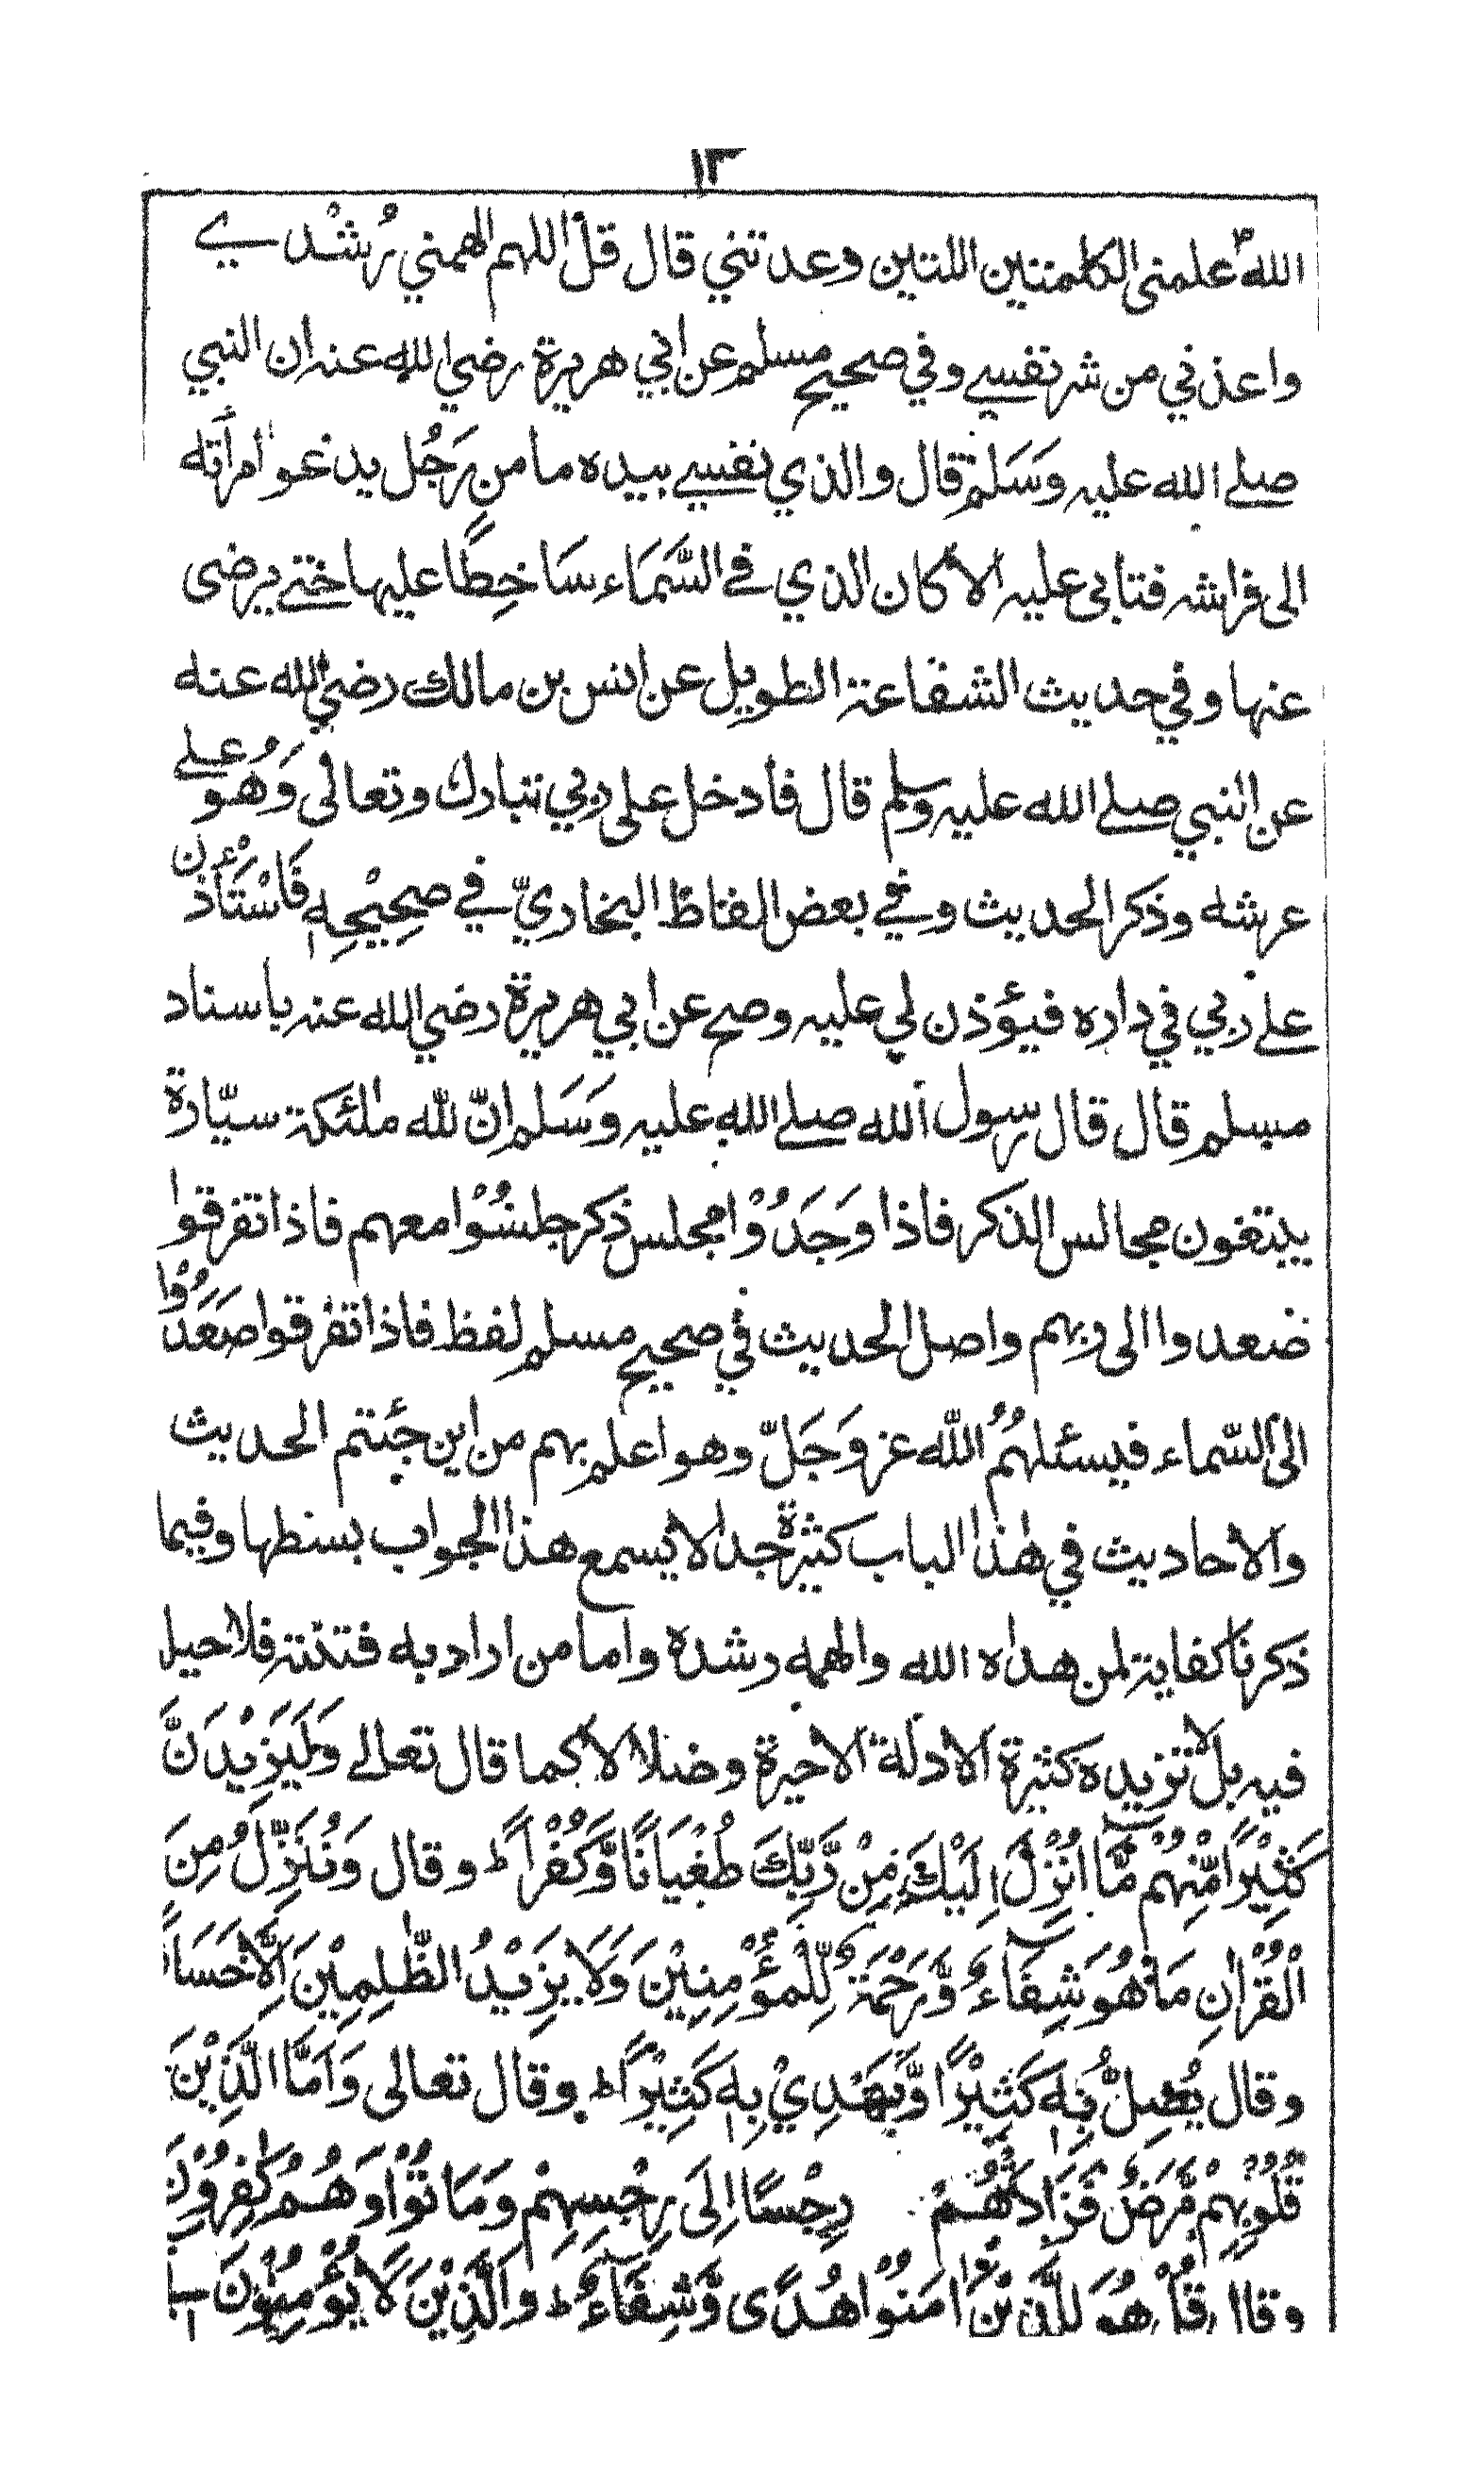 ١٣
الله علمني الكلمتين اللتين وعدتني قال قل اللهم الهمني رُشْدي
واعذني من شر نفسي وفي صحيح مسلم عن ابي هريرة رضي الله عنه ان النبي
صلے الله عليه وَسَلم قال والذي نفسي بيده ما من رَجُل يدعو امرأته
الى فراشه فتابى عليه الا كان الذي في السَّمَاء سَاخِطًا عليها حتے يرضى
عنها وفي حديث الشفاعة الطويل عن انس بن مالك رضي الله عنه
عن النبي صلے الله عليه وسلم قال فادخل على ربي تبارك وتعالى وَهُو علے
عرشه وذكر الحديث وفي بعض الفاظ البخاريّ في صحِيْحِهٖ فَاسْتَأْذن
علے ربي في داره فيؤذن لي عليه وصح عن ابي هريرة رضي الله عنه باسناد
مسلم قال قال رسول الله صلے الله عليه وَسَلم انّ لله ملئكة سيّارة
يبتغون مجالس الذكر فاذا وَجَدُوْا مجلس ذكر جلسُوْا معهم فاذا تفرقوا
ضعدوا الى ربهم واصل الحديث في صحيح مسلم لفظ فاذا تفرقوا صَعَدُوْا
الى السّماء فيسئلهُمُ اللّٰه عز وَجَلّ وهو اعلم بهم من اين جئتم الحديث
والاحاديث في هٰذا الباب كثيرة جدا لا يسمع هذا الجواب بسنطها وفيما
ذكرنا كفاية لمن هداه الله والهمه رشده واما من اراد به فتنته فلا حيل
فيه بل لا تزيده كثرة الادلة الاحيرة وضلالا كما قال تعالے وَلَيَزِيْدَنَّ
كَثِيْرًا مِّنْهُمْ مَّا اُنْزِلَ اِلَيْكَ مِنْ رَّبِّكَ طُغْيَانًا وَّكُفْراً ط وقال وَنُنَزِّلُ مِنَ
الْقُرْاٰنِ مَا هُوَ شِفَآءٌ وَّرَحْمَةٌ لِّلْمُؤْمِنِيْنَ وَلَا يَزِيْدُ الظّٰلِمِيْنَ اِلَّا خَسَاً
وقال يُضِلُّ بِهٖ كَثِيْرًا وَّيَهْدِيْ بِهٖ كَثِيْرًا ط وقال تعالى وَاَمَّا الَّذِيْنَ
قُلُوْبِهِمْ مَّرَضٌ فَزَادَتْهُمْ رِجْسًا اِلَى رِجْسِهِمْ وَمَاتُوْا وَهُمْ كٰفِرُوْنَ
وقال قُلْ هُوَ لِلَّذِيْنَ اٰمَنُوْا هُدًى وَّشِفَآءٌ ط وَالَّذِيْنَ لَا يُؤْمِنُوْنَ